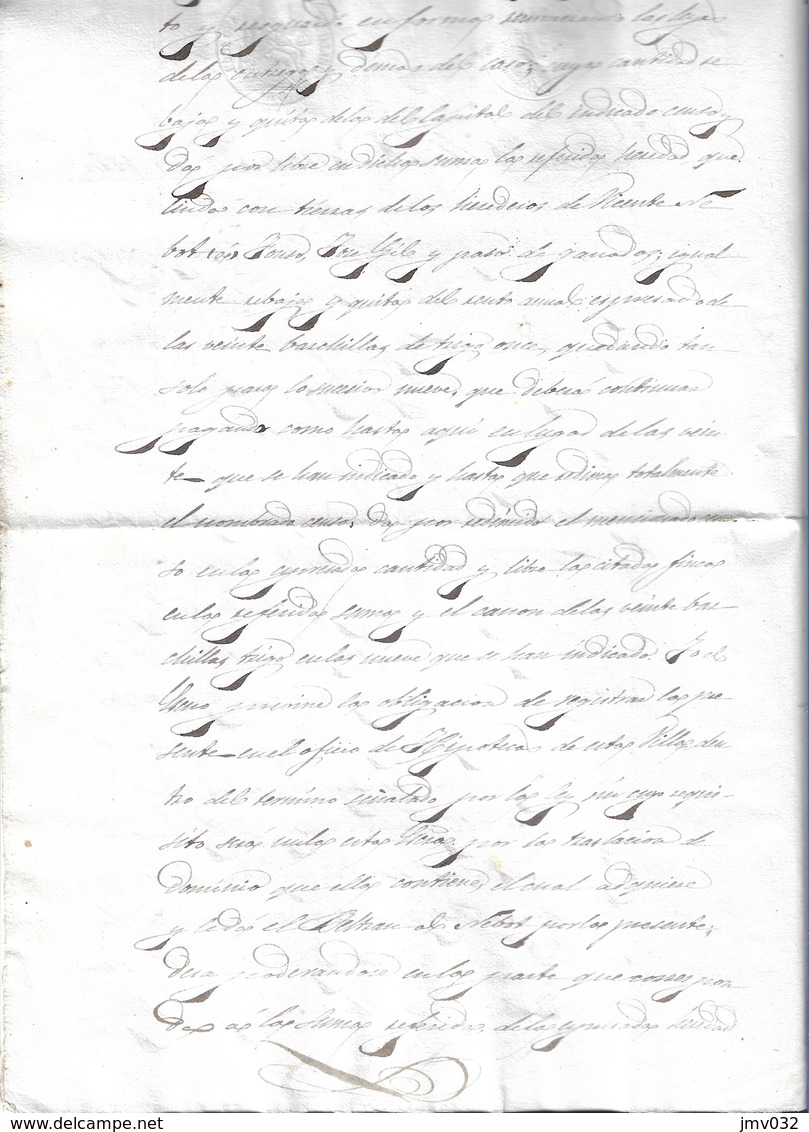 to y seguridad en forma renunciando las leyes
de la entrega y demas del caso; cuya cantidad se
baja y quita de la del Capital del indicado censo y
da por libre en dicha suma la referida heredad que
linda con tierras de los herederos de Vicente Ne-
bot José Gil y paso de ganados; igual
mente rebaja y quita del rento anual espresado de
las veinte barchillas de trigo once, quedando tan
solo para lo sucesivo nueve, que deberá continuar
pagando como hasta aqui en lugar de las vein-
te que se han indicado y hasta que redima totalmente
el nombrado censo; da por redimido el mencionado cen-
so en la espresada cantidad y libre la citada finca
en la referida suma y el canon de las veinte bar-
chillas trigo en las nueve que se han indicado. Yo el
Escno previne la obligacion de registrar la pre-
sente en el oficio de Hipotecas de esta Villa den-
tro del termino señalado por la ley sin cuyo requi-
sito será nula esta Escra por la traslacion de
dominio que ella contiene, el cual adquiere
y le da el Beltran al Nebot por la presente,
desapoderandose en la parte que corres pon
de á la suma referida, de la espresada heredad
jmv032